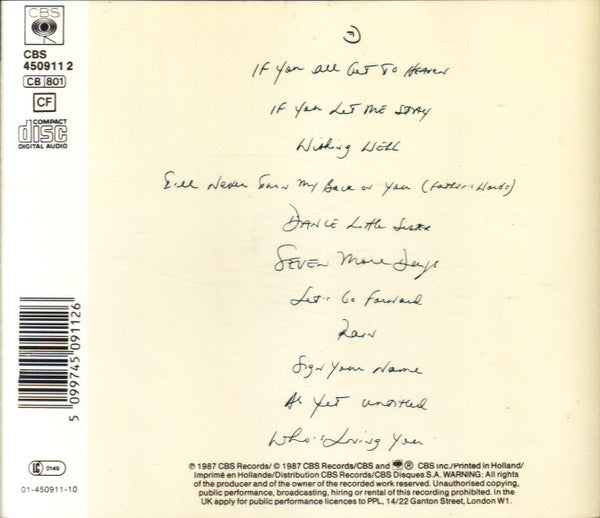 CBS
CBS
450911 2
CB 801
CF
COMPACT
disc
DIGITAL AUDIO
If You All Get To Heaven
If You Let Me Stay
Wishing Well
I'll Never Turn My Back on You (Father's Words)
Dance Little Sister
Seven More Days
Let's Go Forward
Rain
Sign Your Name
As Yet Untitled
Who's Loving You
5 099745 091126
LC 0149
01-450911-10
℗ 1987 CBS Records/ © 1987 CBS Records/CBS and ® CBS inc./Printed in Holland/
Imprimé en Hollande/Distribution CBS Records/CBS Disques S.A. WARNING: All rights
of the producer and of the owner of the recorded work reserved. Unauthorised copying,
public performance, broadcasting, hiring or rental of this recording prohibited. In the
UK apply for public performance licences to PPL, 14/22 Ganton Street, London W1.